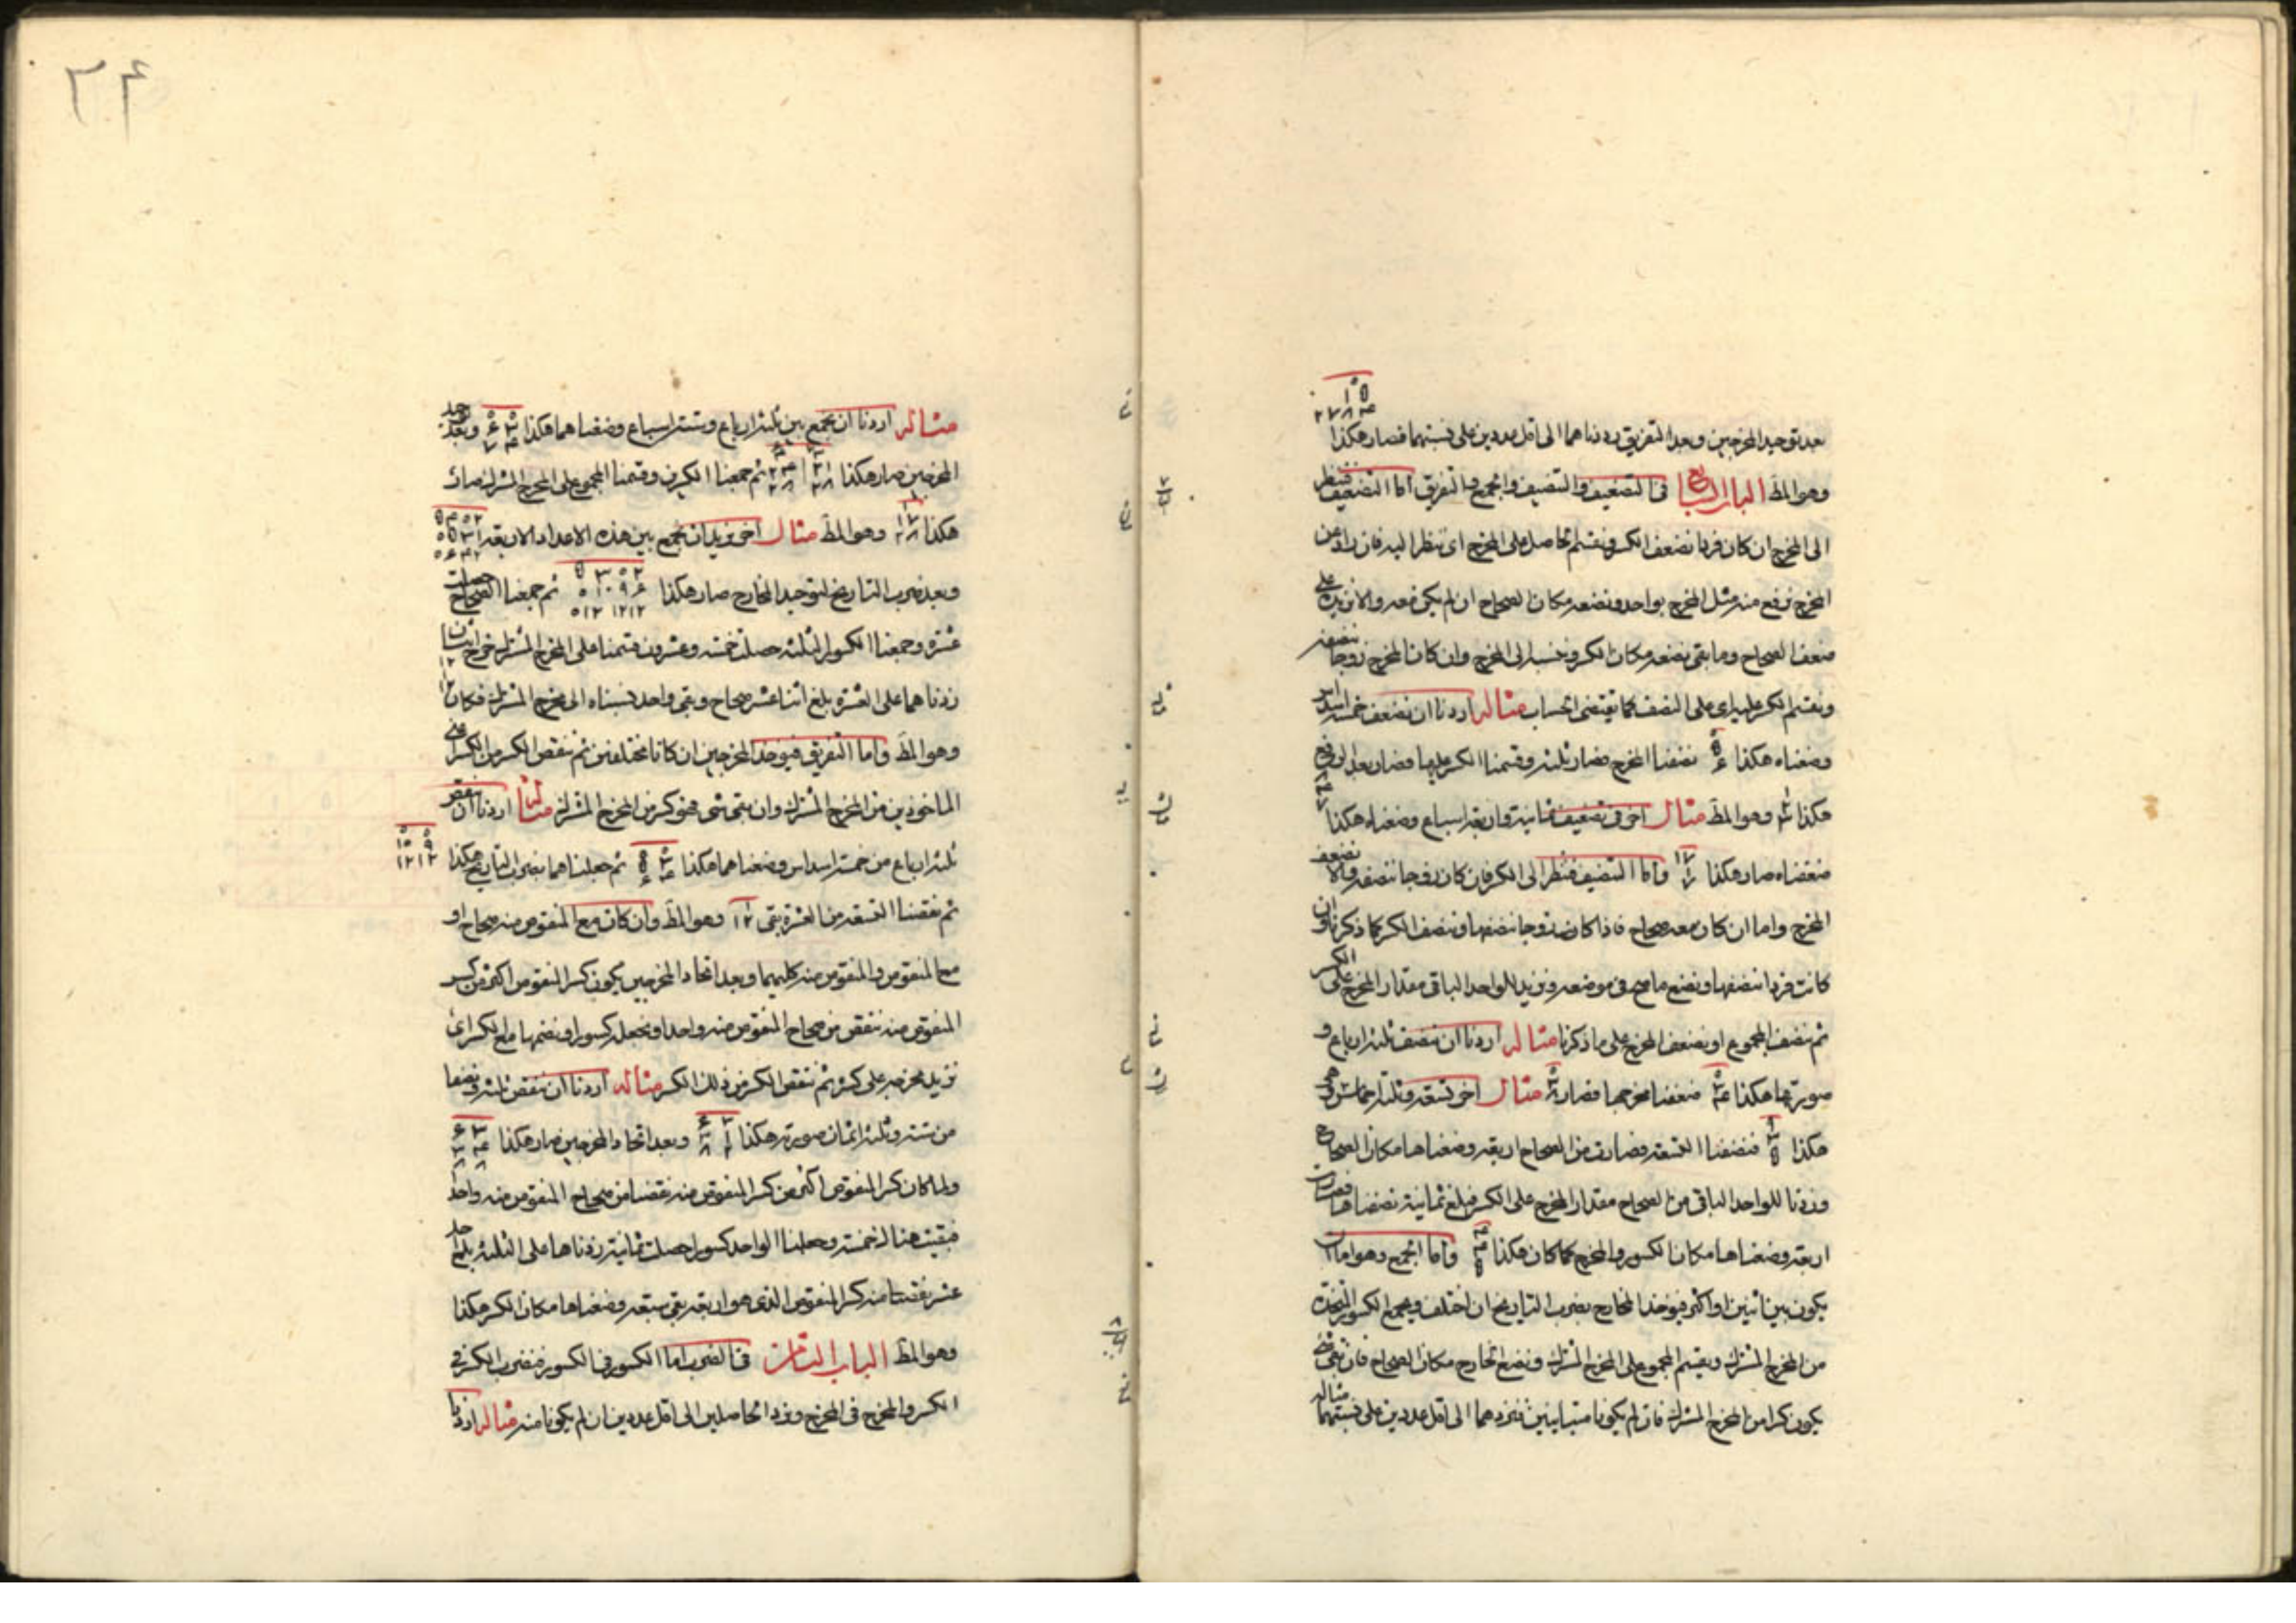 بعد توحيد المخرجين وبعد التفريق رددناهما الى اقل عددين على نسبتهما فصار هكذا
وهو المط الباب السابع فى التضعيف والتنصيف والجمع والتفريق اما التضعيف فننظر
الى المخرج ان كان فردا نضعف الكسر ونقسم الحاصل على المخرج اى ننظر اليه فان زاد عن
المخرج نرفع منه مثل المخرج بواحد ونضعه مكان الصحاح ان لم يكن معه والا نزيده على
ضعف الصحاح وما بقى نضعه مكان الكسر وننسبه الى المخرج وان كان المخرج زوجا ننصفه
ونقسم الكسر عليه اى على النصف كما يقتضى الحساب مثاله اردنا ان نضعف خمسة اسداس
وضعناه هكذا ٥ ٦ نصفنا المخرج فصار ثلثة وقسمنا الكسر عليها فصار بعد الرفع
هكذا وهو المط مثال اخر فى تضعيف ثمانية واربعة اسباع وضعناه هكذا
ضعفناه صار هكذا ١٧ ١ ٧ واما التنصيف فننظر الى الكسر فان كان زوجا ننصفه والا نضعف
المخرج واما ان كان معه صحاح فاذا كان زوجا ننصفها وننصف الكسر كما ذكرنا وان
كانت فردا ننصفها ونضع ما صح فى موضعه ونزيد للواحد الباقى مقدار المخرج على الكسر
ثم ننصف المجموع او نضعف المخرج على ما ذكرنا مثاله اردنا ان ننصف ثلثة ارباع و
صورتها هكذا ٣ ٤ ضعفنا مخرجها فصار ٣ ٨ مثال اخر تسعة وثلثة اخماس
هكذا ٩ ٣ ٥ فنصفنا التسعة فصارت من الصحاح اربعة وضعناها مكان الصحاح
وزدنا للواحد الباقى من الصحاح مقدار المخرج على الكسر فبلغ ثمانية نصفناها فصارت
اربعة وضعناها مكان الكسور والمخرج كما كان هكذا ٤ ٤ ٥ واما الجمع وهو اما ان
يكون بين اثنين او اكثر فيوخذ المخارج بضرب التاريخ ان اختلف ويجمع الكسور المتحدة
من المخرج المشترك ويقسم المجموع على المخرج المشترك ونضع الخارج مكان الصحاح فان بقى شئ
يكون كسرا من المخرج المشترك فان لم يكونا متباينين نردهما الى اقل عددين على نسبتهما مثاله
٣٤
مثاله اردنا ان نجمع بين ثلثة ارباع وستة اسباع وضعناهما هكذا ٣ ٤ ٦ ٧ وبعد توحيد
المخرجين صار هكذا ٢١ ٢٨ ٢٤ ٢٨ ثم جمعنا الكسرين وقسمنا المجموع على المخرج المشترك صار
هكذا ١ ١٧ ٢٨ وهو المط مثال اخر نريد ان نجمع بين هذه الاعداد الاربعة
وبعد ضرب التاريخ لتوحيد المخارج صار هكذا ثم جمعنا الصحاح حصلت
عشرة وجمعنا الكسور الثلثة حصلت خمسة وعشرون قسمنا على المخرج المشترك خرج اثنان
زدناهما على العشرة بلغ اثنا عشر صحاح وبقى واحد نسبناه الى مخرج المشترك فكان
وهو المط واما التفريق فيوخذ المخرجين ان كانا مختلفين ثم ننقص الكسر من الكسر
الماخوذين من المخرج المشترك وان بقى شئ فهو كسر من المخرج المشترك مثاله اردنا ان ننقص
ثلثة ارباع من خمسة اسداس وضعناهما هكذا ٣ ٤ ٥ ٦ ثم جعلناهما بضرب التاريخ هكذا ٩ ١٢ ١٠ ١٢
ثم نقصنا التسعة من العشرة بقى ١ ١٢ وهو المط وان كان مع المنقوص منه صحاح او
مع المنقوص والمنقوص منه كليهما وبعد اتحاد المخرجين يكون كسر المنقوص اكثر من كسر
المنقوص منه ننقص من صحاح المنقوص منه واحدا ونجعله كسورا ونضمها مع الكسر اى
نزيد مخرجه على كسره ثم ننقص الكسر من ذلك الكسر مثاله اردنا ان ننقص ثلثة ونصفا
من ستة وثلثة اثمان صورته هكذا وبعد اتحاد المخرجين صار هكذا
ولما كان كسر المنقوص اكثر من كسر المنقوص منه نقصنا من صحاح المنقوص منه واحدا
فبقيت هناك خمسة وجعلنا الواحد كسورا حصلت ثمانية زدناها على الثلثة بلغ احد
عشر نقصنا منه كسر المنقوص الذى هو اربعة بقى سبعة وضعناها مكان الكسر هكذا
وهو المط الباب الثامن فى الضرب اما الكسور فى الكسور فنضرب الكسر فى
الكسر والمخرج فى المخرج ونرد الحاصلين الى اقل عددين ان لم يكونا منه مثاله اردنا